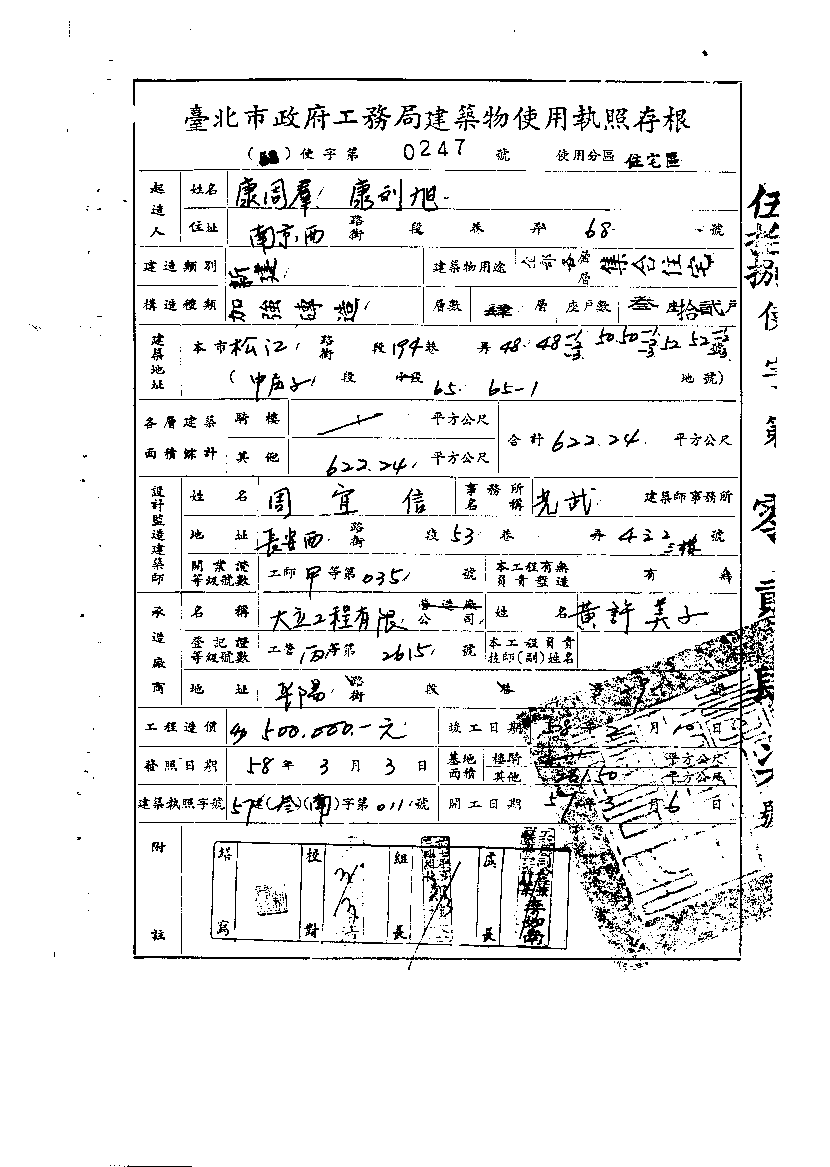 臺北市政府工務局建築物使用執照存根
(58)使字第 0247 號 使用分區 住宅區
伍拾捌使字第零貳肆柒號
起造人 姓名 康周羣 康利旭
住址 南京西 路街 段 巷 弄 68 號
建造類別 新建 建築物用途 全部各層 集合住宅
構造種類 加強磚造 層數 肆 層 座戶數 叁座拾貳戶
建築地址 本市 松江 路街 段 194 巷 弄 48. 48-1-3 50. 50-1-3 52 52-1-3 號
( 中庄子 段 小段 65 65-1 地號)
各層建築面積總計 騎樓 平方公尺 合計 622.24 平方公尺
其他 622.24 平方公尺
設計監造建築師 姓名 周宜信 事務所名稱 光武 建築師事務所
地址 長安西 路街 段 53 巷 弄 4 號 三樓
開業證等級號數 工師 甲 等第 0351 號 本工程有無負責監造 有 無
承造廠商 名稱 大立工程有限 營造廠公司 姓名 黃許美子
登記證等級號數 工營 丙 等第 2615 號 本工程負責技師(副)姓名
地址 華陽 路街 段 巷 號
工程造價 500.000.-元 竣工日期 58 年 2 月 10 日
發照日期 58 年 3 月 3 日 基地面積 騎樓 平方公尺
其他 平方公尺
建築執照字號 57建(叁)(南)字第 0111 號 開工日期 57 年 3 月 6 日
附註
繕寫 校對 組長